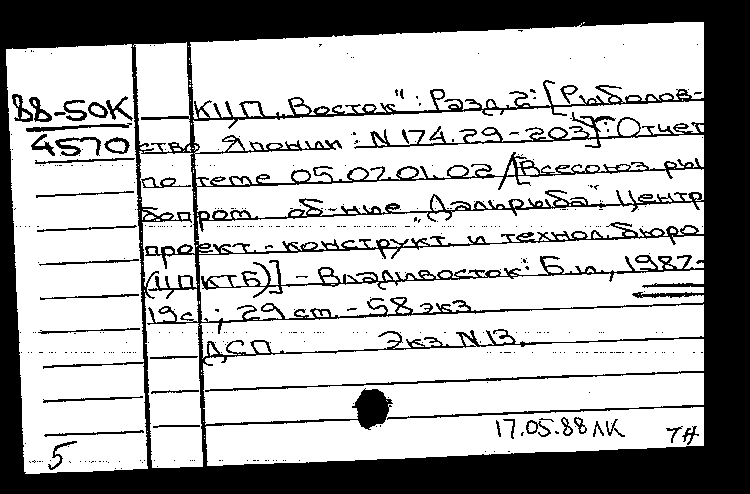 88-50К
4570
КЦП „Восток“: Разд. 2: [Рыболов-
ство Японии: N 174.29-203]: Отчет
по теме 05.07.01.02 / [Всесоюз. ры
бопром. об-ние „Дальрыба“, Центр.
проект.-конструкт. и технол. бюро
(ЦПКТБ)] - Владивосток: Б.и., 1987-
19с.; 29 см. - 58 экз.
ДСП. Экз. N 13.
17.05.88 ЛК ТН
5